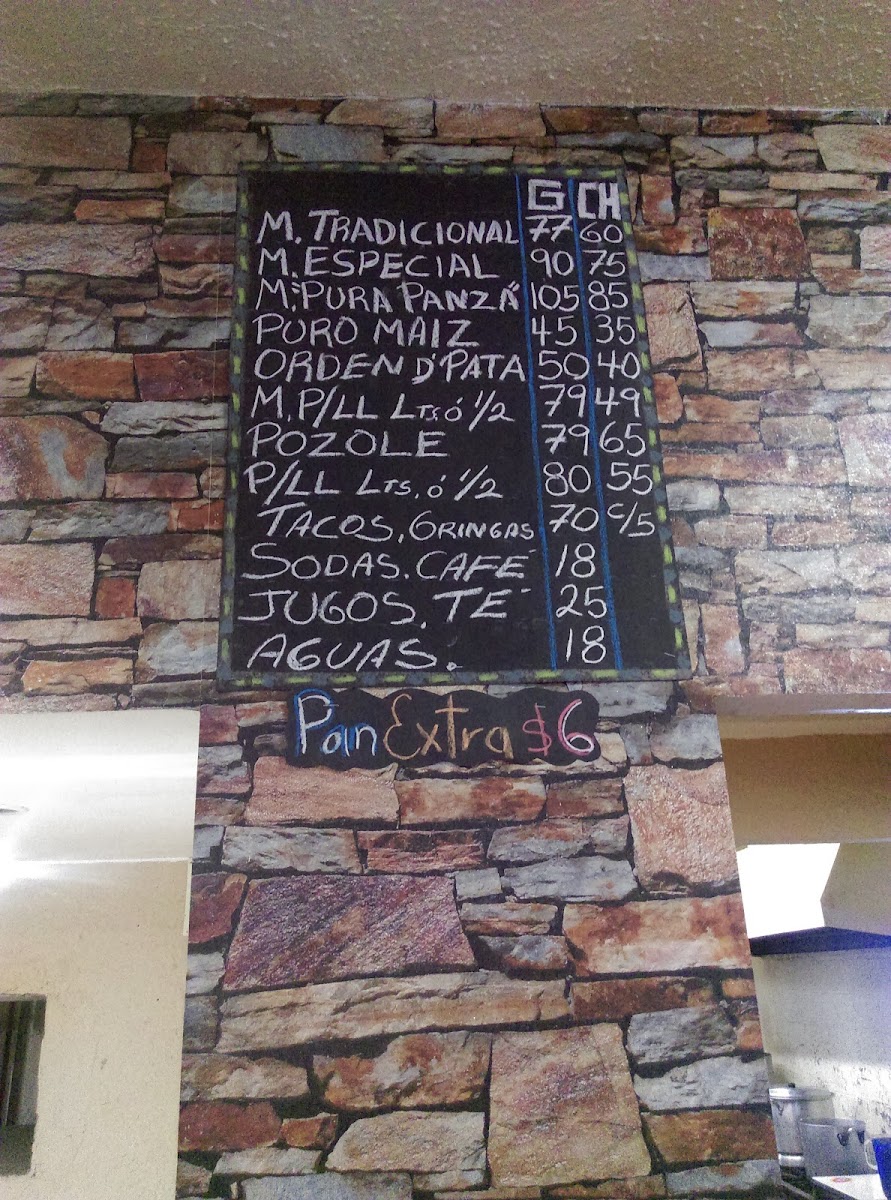 G CH
M. TRADICIONAL 77 60
M. ESPECIAL 90 75
M. "PURA PANZA" 105 85
PURO MAIZ 45 35
ORDEN D'PATA 50 40
M. P/LL LTS ó 1/2 79 49
POZOLE 79 65
P/LL LTS, ó 1/2 80 55
TACOS, GRINGAS 70 C/5
SODAS. CAFÉ 18
JUGOS. TÉ 25
AGUAS. 18
Pan Extra $6